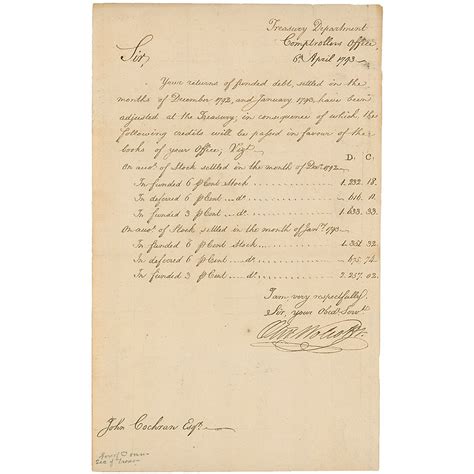 Treasury Department
Comptrollers Office
6th April 1793
Sir
Your returns of funded debt, settled in the
months of December 1792, and January 1793, have been
adjusted at the Treasury, in consequence of which, the
following credits will be passed in favour of the
books of your Office, Vizt
D. C.
On accot of Stock settled in the month of Decr 1792.
In funded 6 p Cent Stock ............ 1,232. 18.
In deferred 6 p Cent .. do ............ 616. 11.
In funded 3 p Cent .. do ............ 1,633. 33.
On accot of Stock settled in the month of Jany 1793.
In funded 6 p Cent Stock ............ 1,351. 32.
In deferred 6 p Cent .. do ............ 675. 74.
In funded 3 p Cent .. do ............ 2,257. 02.
I am very respectfully
Sir, your Obedt Servt
Olivr Wolcott Jr.
John Cochran Esqr.